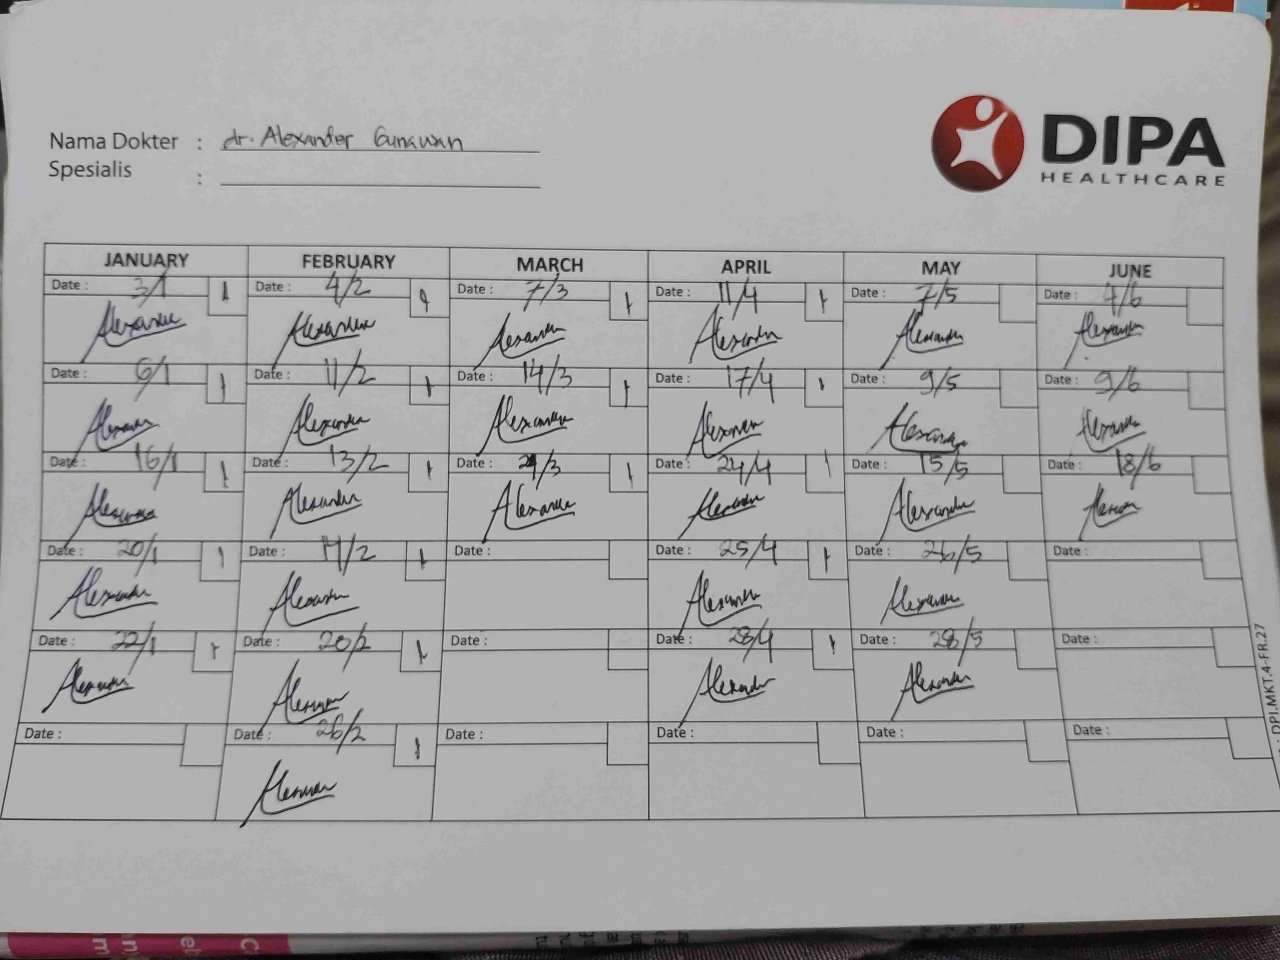 Nama Dokter : dr. Alexander Gunawan
Spesialis :
DIPA
HEALTHCARE
JANUARY FEBRUARY MARCH APRIL MAY JUNE
Date : 3/1 1 Date : 4/2 1 Date : 7/3 1 Date : 11/4 1 Date : 7/5 Date : 4/6
Alexander Alexander Alexander Alexander Alexander Alexander
Date : 6/1 1 Date : 11/2 1 Date : 14/3 1 Date : 17/4 1 Date : 9/5 Date : 9/6
Alexander Alexander Alexander Alexander Alexander Alexander
Date : 16/1 1 Date : 13/2 1 Date : /3 1 Date : 24/4 1 Date : 15/5 Date : 18/6
Alexander Alexander Alexander Alexander Alexander
Date : 20/1 1 Date : /2 1 Date : Date : 25/4 1 Date : 26/5 Date :
Alexander Alexander Alexander Alexander
Date : 22/1 1 Date : 20/2 1 Date : Date : 28/4 1 Date : 28/5 Date :
Alexander Alexander Alexander Alexander
Date : Date : 26/2 1 Date : Date : Date : Date :
DPI.MKT.4-FR.27